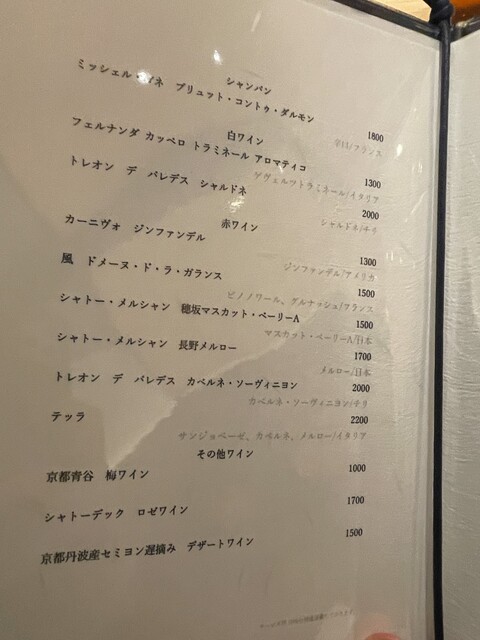 シャンパン
ミッシェル・ ネ ブリュット・コントゥ・ダルモン
1800
辛口/フランス
白ワイン
フェルナンダ カッペロ トラミネール アロマティコ
1300
ゲヴェルツトラミネール/イタリア
トレオン デ パレデス シャルドネ
2000
シャルドネ/チリ
赤ワイン
カーニヴォ ジンファンデル
1300
ジンファンデル/アメリカ
風 ドメーヌ・ド・ラ・ガランス
1500
ピノノワール、グルナッシュ/フランス
シャトー・メルシャン 穂坂マスカット・ベーリーA
1500
マスカット・ベーリーA/日本
シャトー・メルシャン 長野メルロー
1700
メルロー/日本
トレオン デ パレデス カベルネ・ソーヴィニヨン
2000
カベルネ・ソーヴィニヨン/チリ
テッラ
2200
サンジョベーゼ、カベルネ、メルロー/イタリア
その他ワイン
京都青谷 梅ワイン
1000
シャトーデック ロゼワイン
1700
京都丹波産セミヨン遅摘み デザートワイン
1500